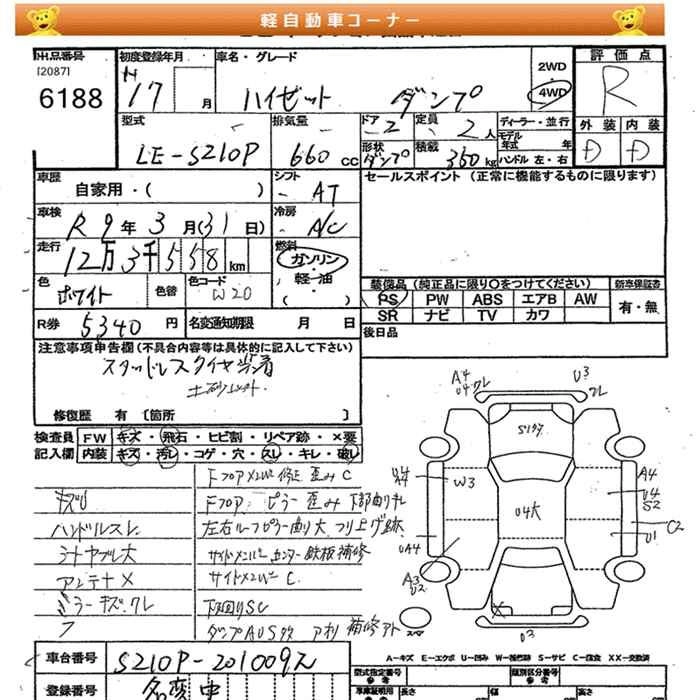 軽自動車コーナー
出品番号 初度登録年月 車名・グレード 2WD 評価点
[2087] 4WD
6188 H 17 月 ハイゼット ダンプ R
型式 排気量 ドア 定員 ディーラー・並行 外装 内装
LE-S210P 660 cc 2 2人 モデル年式 年 D D
形状 ダンプ 積載 350 kg ハンドル 左・右
車歴 シフト セールスポイント (正常に機能するものに限ります)
自家用・( ) AT
車検 冷房
R 9年 3月(31日) A/C
走行 燃料
12万3千558km ガソリン・軽油
色 色替 色コード ( ) 装備品 (純正品に限り○をつけてください) 新車保証書
ホワイト W20 PS PW ABS エアB AW 有・無
SR ナビ TV カワ
R券 5340 円 名変通知期限 月 日 後日品
注意事項申告欄 (不具合内容等は具体的に記入して下さい)
スタッドレスタイヤ装着
修復歴 有 〔箇所 〕
検査員 FW キズ・飛石・ヒビ割・リペア跡・×要
記入欄 内装 キズ・汚レ・コゲ・穴・スレ・キレ・破レ
Fフロアメンバー修正 歪み C
Fフロア、ピラー歪み 下部曲り
ハンドルスレ 左右ルーフピラー曲り大 吊り上げ跡
シートヤブレ大 サイドメンバーセンター鉄板補修
アンテナ× サイドメンバー C
ミラーキズ、ワレ 下回りSC
補修アト
A4 U4 ワレ U3 ワレ
W3 U4大 A4 U4 S2
UA4 U1 C2
A3 U2
スペア U3
A-キズ E-エクボ U-凹み W-補修跡 S-サビ C-腐食 XX-交換済
車台番号 S210P-201009 型式指定番号 参考 類別区分番号 参考
登録番号 名変中 車庫証明用 参考 長さ 幅 高さ